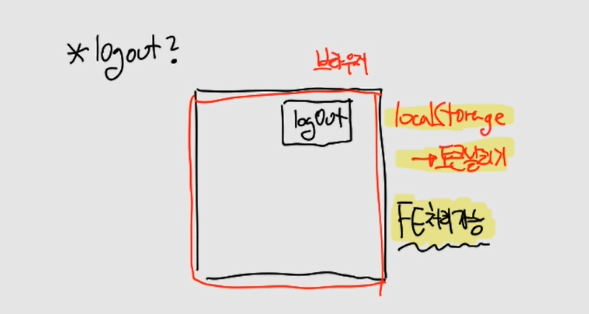 *logout?
브라우저
logout
localStorage
→토큰날리기
FE처리가능